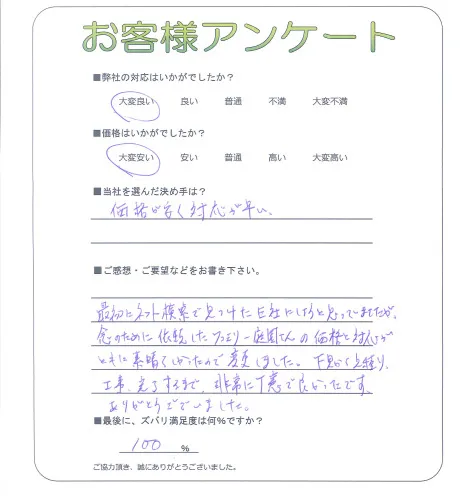 お客様アンケート
■弊社の対応はいかがでしたか？
大変良い 良い 普通 不満 大変不満
■価格はいかがでしたか？
大変安い 安い 普通 高い 大変高い
■当社を選んだ決め手は？
価格が安く対応が早い。
■ご感想・ご要望などをお書き下さい。
最初にネット検索で見つけたE社にしようと思ってましたが、
念のために依頼したファミリー庭園さんの価格と対応が
ともに素晴らしかったので変更しました。下見から見積り、
工事、完了するまで、非常に丁寧で良かったです。
ありがとうございました。
■最後に、ズバリ満足度は何%ですか？
100 %
ご協力頂き、誠にありがとうございました。